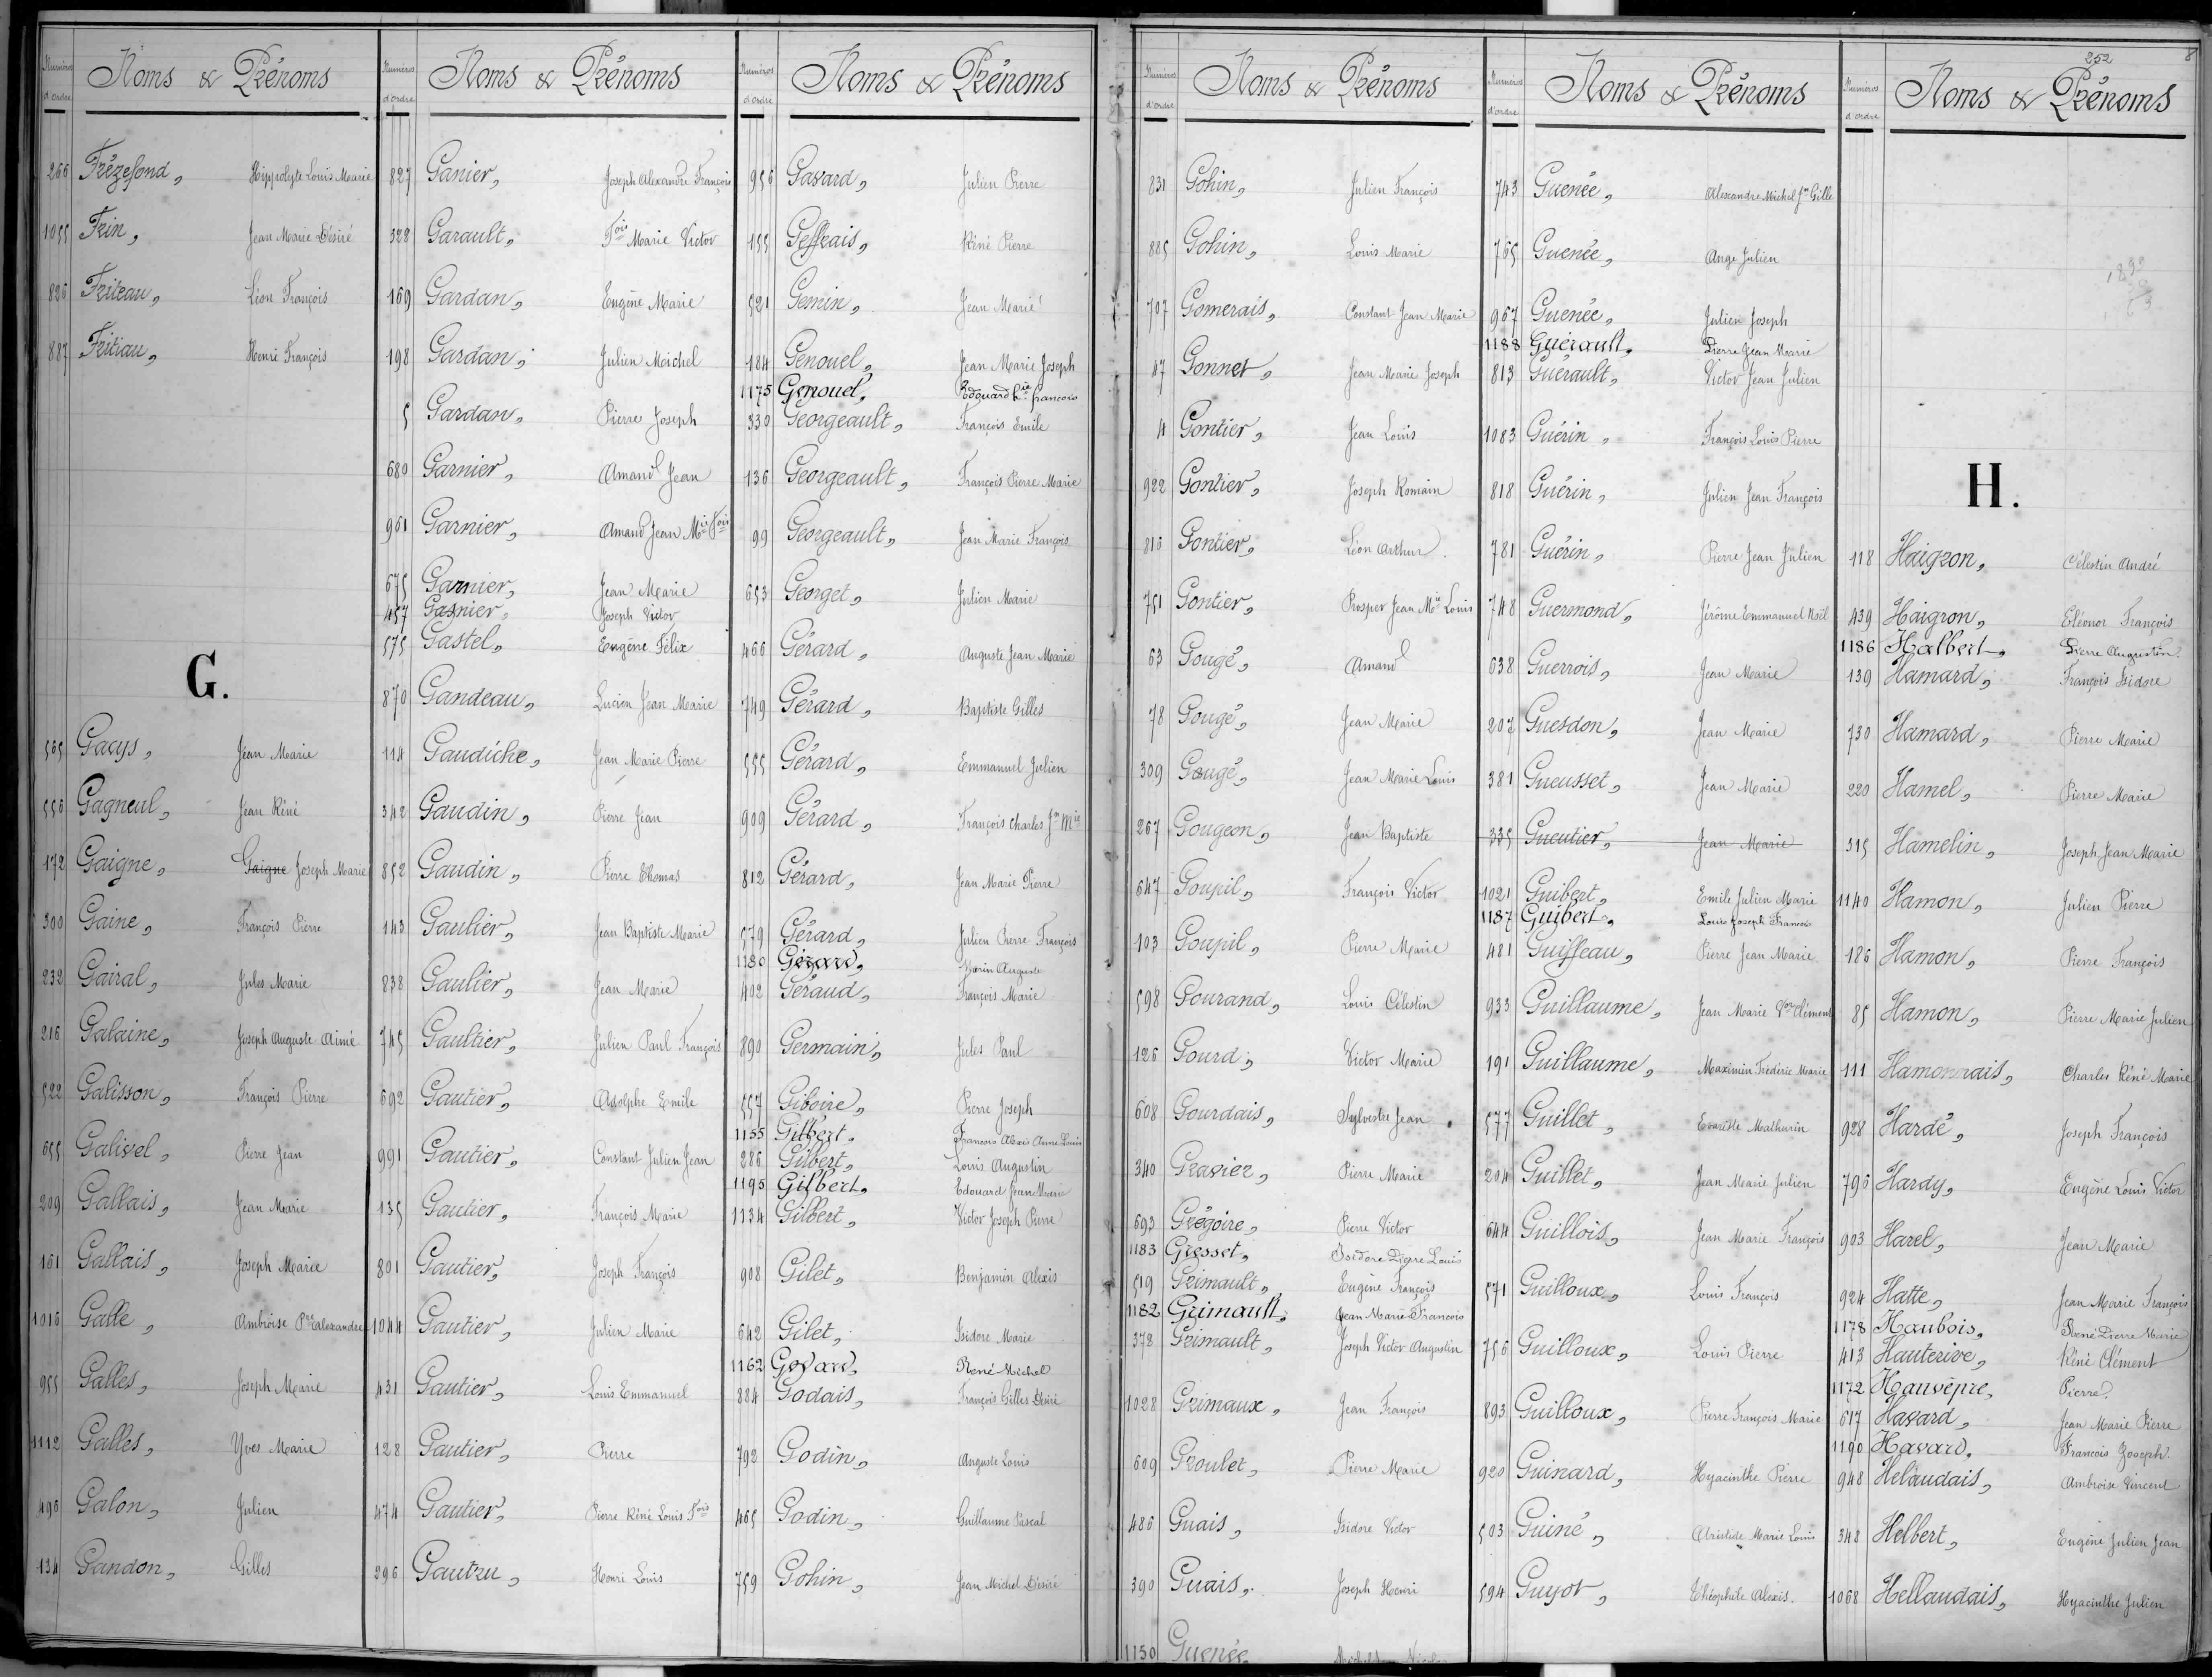 Numéros d'ordre Noms & Prénoms
266 Frézefond, Hippolyte Louis Marie
1055 Frin, Jean Marie Désiré
826 Friteau, Léon François
887 Fritiau, Henri François
G.
505 Gacys, Jean Marie
556 Gagneul, Jean Réné
172 Gaigne, Gaigne Joseph Marie
300 Gaine, François Pierre
232 Gairal, Jules Marie
216 Galaine, Joseph Auguste Aimé
522 Galisson, François Pierre
655 Galivel, Pierre Jean
209 Gallais, Jean Marie
161 Gallais, Joseph Marie
1016 Galle, Ambroise Pre Alexandre
955 Galles, Joseph Marie
1112 Galles, Yves Marie
496 Galon, Julien
134 Gandon, Gilles
Numéros d'ordre Noms & Prénoms
827 Ganier, Joseph Alexandre François
328 Garault, Fois Marie Victor
169 Gardan, Eugène Marie
198 Gardan, Julien Michel
5 Gardan, Pierre Joseph
680 Garnier, Amand Jean
961 Garnier, Amand Jean Mie Fois
675 Garnier, Jean Marie
457 Gasnier, Joseph Victor
575 Gastel, Eugène Félix
870 Gandeau, Lucien Jean Marie
114 Gaudiche, Jean Marie Pierre
342 Gaudin, Pierre Jean
852 Gaudin, Pierre Thomas
143 Gaulier, Jean Baptiste Marie
838 Gaulier, Jean Marie
745 Gaultier, Julien Paul François
692 Gautier, Adolphe Emile
991 Gautier, Constant Julien Jean
135 Gautier, François Marie
801 Gautier, Joseph François
1044 Gautier, Julien Marie
431 Gautier, Louis Emmanuel
128 Gautier, Pierre
474 Gautier, Pierre Réné Louis Fois
296 Gautru, Henri Louis
Numéros d'ordre Noms & Prénoms
956 Gavard, Julien Pierre
155 Geffrais, Réné Pierre
521 Gemin, Jean Marie
184 Genouel, Jean Marie Joseph
1175 Genouel, Edouard Lis françois
330 Georgeault, François Emile
136 Georgeault, François Pierre Marie
99 Georgeault, Jean Marie François
653 Georget, Julien Marie
466 Gérard, Auguste Jean Marie
749 Gérard, Baptiste Gilles
555 Gérard, Emmanuel Julien
909 Gérard, François Charles Jn Mie
812 Gérard, Jean Marie Pierre
579 Gérard, Julien Pierre François
1180 Gérard, Marin Auguste
402 Géraud, François Marie
890 Germain, Jules Paul
557 Giboire, Pierre Joseph
1155 Gilbert, Francois Alexis Anne Louis
286 Gilbert, Louis Augustin
1195 Gilbert, Edouard Jean Marie
1134 Gilbert, Victor Joseph Pierre
908 Gilet, Benjamin Alexis
642 Gilet, Isidore Marie
1162 Godard, René Michel
884 Godais, François Gilles Désiré
792 Godin, Auguste Louis
465 Godin, Guillaume Pascal
759 Gohin, Jean Michel Désiré
Numéros d'ordre Noms & Prénoms
831 Gohin, Julien François
885 Gohin, Louis Marie
707 Gomerais, Constant Jean Marie
47 Gonnet, Jean Marie Joseph
4 Gontier, Jean Louis
922 Gontier, Joseph Romain
816 Gontier, Léon Arthur
751 Gontier, Prosper Jean Mie Louis
63 Gougé, Amand
78 Gougé, Jean Marie
309 Gougé, Jean Marie Louis
267 Gougeon, Jean Baptiste
647 Goupil, François Victor
103 Goupil, Pierre Marie
598 Gourand, Louis Célestin
126 Gourd, Victor Marie
608 Gourdais, Sylvestre Jean
340 Gravier, Pierre Marie
693 Grégoire, Pierre Victor
1183 Gresset, Isidore Pierre Louis
519 Grimault, Eugène François
1182 Grimault, Jean Marie Francois
378 Grimault, Joseph Victor Augustin
1028 Grimaux, Jean François
609 Groulet, Pierre Marie
486 Guais, Isidore Victor
390 Guais, Joseph Henri
1150 Guenée
Numéros d'ordre Noms & Prénoms
743 Guenée, Alexandre Michel Jn Gille
765 Guenée, Ange Julien
967 Guenée, Julien Joseph
1188 Guérault, Pierre Jean Marie
813 Guérault, Victor Jean Julien
1083 Guérin, François Louis Pierre
818 Guérin, Julien Jean François
781 Guérin, Pierre Jean Julien
748 Guermond, Jérôme Emmanuel Noël
638 Guerrois, Jean Marie
207 Guesdon, Jean Marie
381 Gueusset, Jean Marie
335 Gueutier, Jean Marie
1021 Guibert, Emile Julien Marie
1187 Guibert, Louis Joseph Francois
481 Guiffeau, Pierre Jean Marie
933 Guillaume, Jean Marie Vor Clément
191 Guillaume, Maximin Frédéric Marie
577 Guillet, Evariste Mathurin
204 Guillet, Jean Marie Julien
644 Guillois, Jean Marie François
571 Guilloux, Louis François
756 Guilloux, Louis Pierre
893 Guilloux, Pierre François Marie
920 Guinard, Hyacinthe Pierre
503 Guiné, Aristide Marie Louis
594 Guyot, Théophile Alexis.
252
8
Numéros d'ordre Noms & Prénoms
H.
118 Haigron, Célestin André
439 Haigron, Eléonor François
1186 Halbert, Pierre Augustin.
139 Hamard, François Isidore
730 Hamard, Pierre Marie
220 Hamel, Pierre Marie
315 Hamelin, Joseph Jean Marie
1140 Hamon, Julien Pierre
186 Hamon, Pierre François
85 Hamon, Pierre Marie Julien
111 Hamonnais, Charles Réné Marie
928 Hardé, Joseph François
796 Hardy, Eugène Louis Victor
903 Harel, Jean Marie
924 Hatte, Jean Marie François
1178 Haubois, René Pierre Marie
413 Hauterive, Réné Clément
1172 Hauvêpre, Pierre.
617 Havard, Jean Marie Pierre
1190 Havard, Francois Joseph.
948 Helaudais, Ambroise Vincent
348 Helbert, Eugène Julien Jean
1068 Hellaudais, Hyacinthe Julien